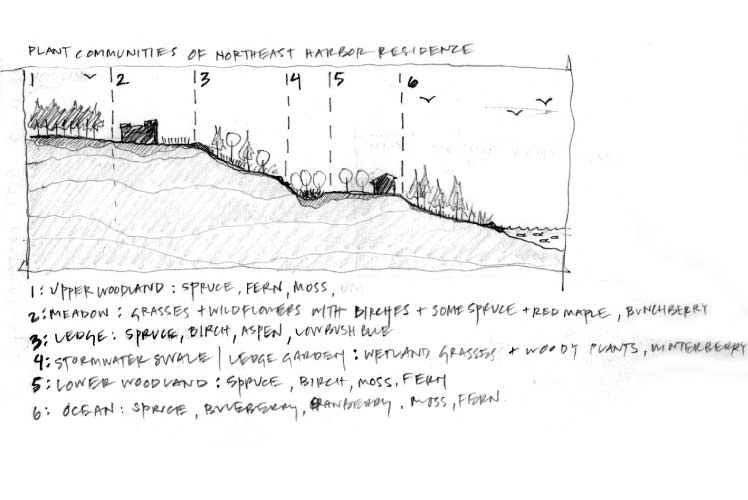 PLANT COMMUNITIES OF NORTHEAST HARBOR RESIDENCE
1 2 3 4 5 6
1: UPPER WOODLAND: SPRUCE, FERN, MOSS,
2: MEADOW: GRASSES + WILDFLOWERS WITH BIRCHES + SOME SPRUCE + RED MAPLE, BUNCHBERRY
3: LEDGE: SPRUCE, BIRCH, ASPEN, LOWBUSH BLUE
4: STORMWATER SWALE | LEDGE GARDEN: WETLAND GRASSES + WOODY PLANTS, WINTERBERRY
5: LOWER WOODLAND: SPRUCE, BIRCH, MOSS, FERN
6: OCEAN: SPRUCE, BLUEBERRY, CRANBERRY, MOSS, FERN